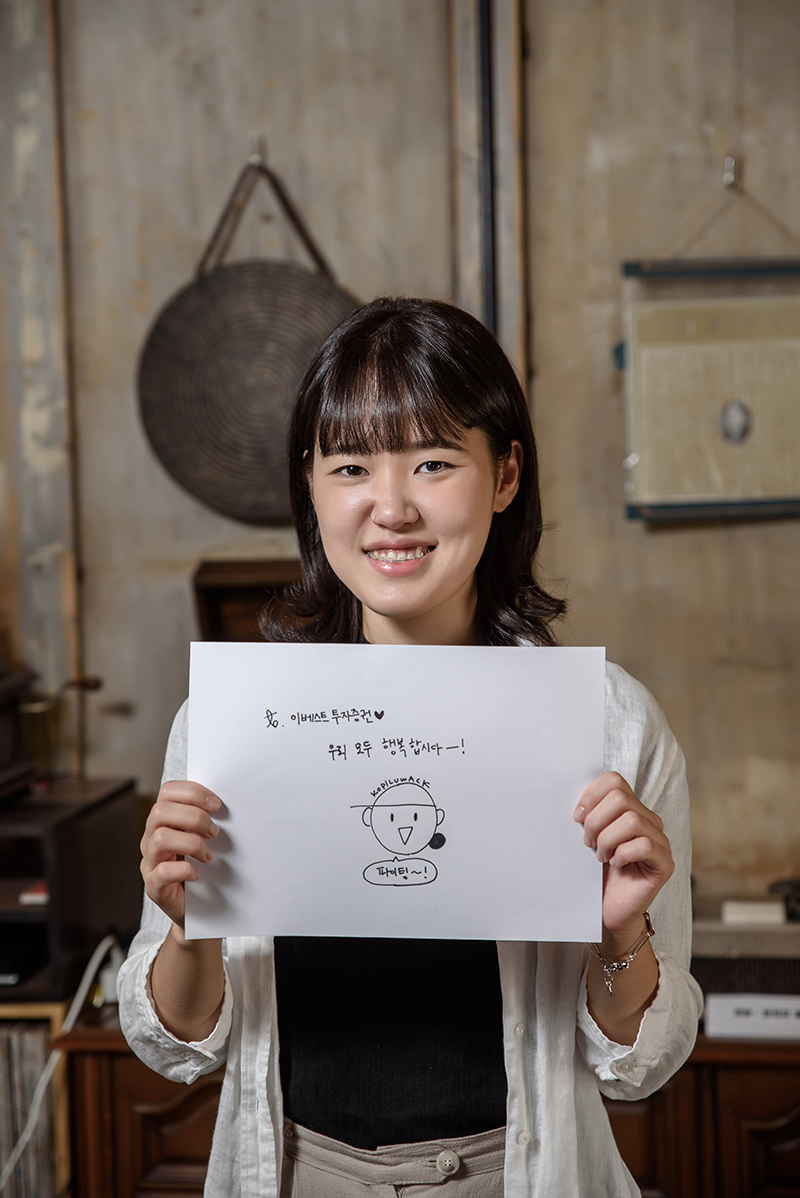 이베스트 투자증권♥
우리 모두 행복합시다ㅡ!
KOPILUWACK
파이팅~!